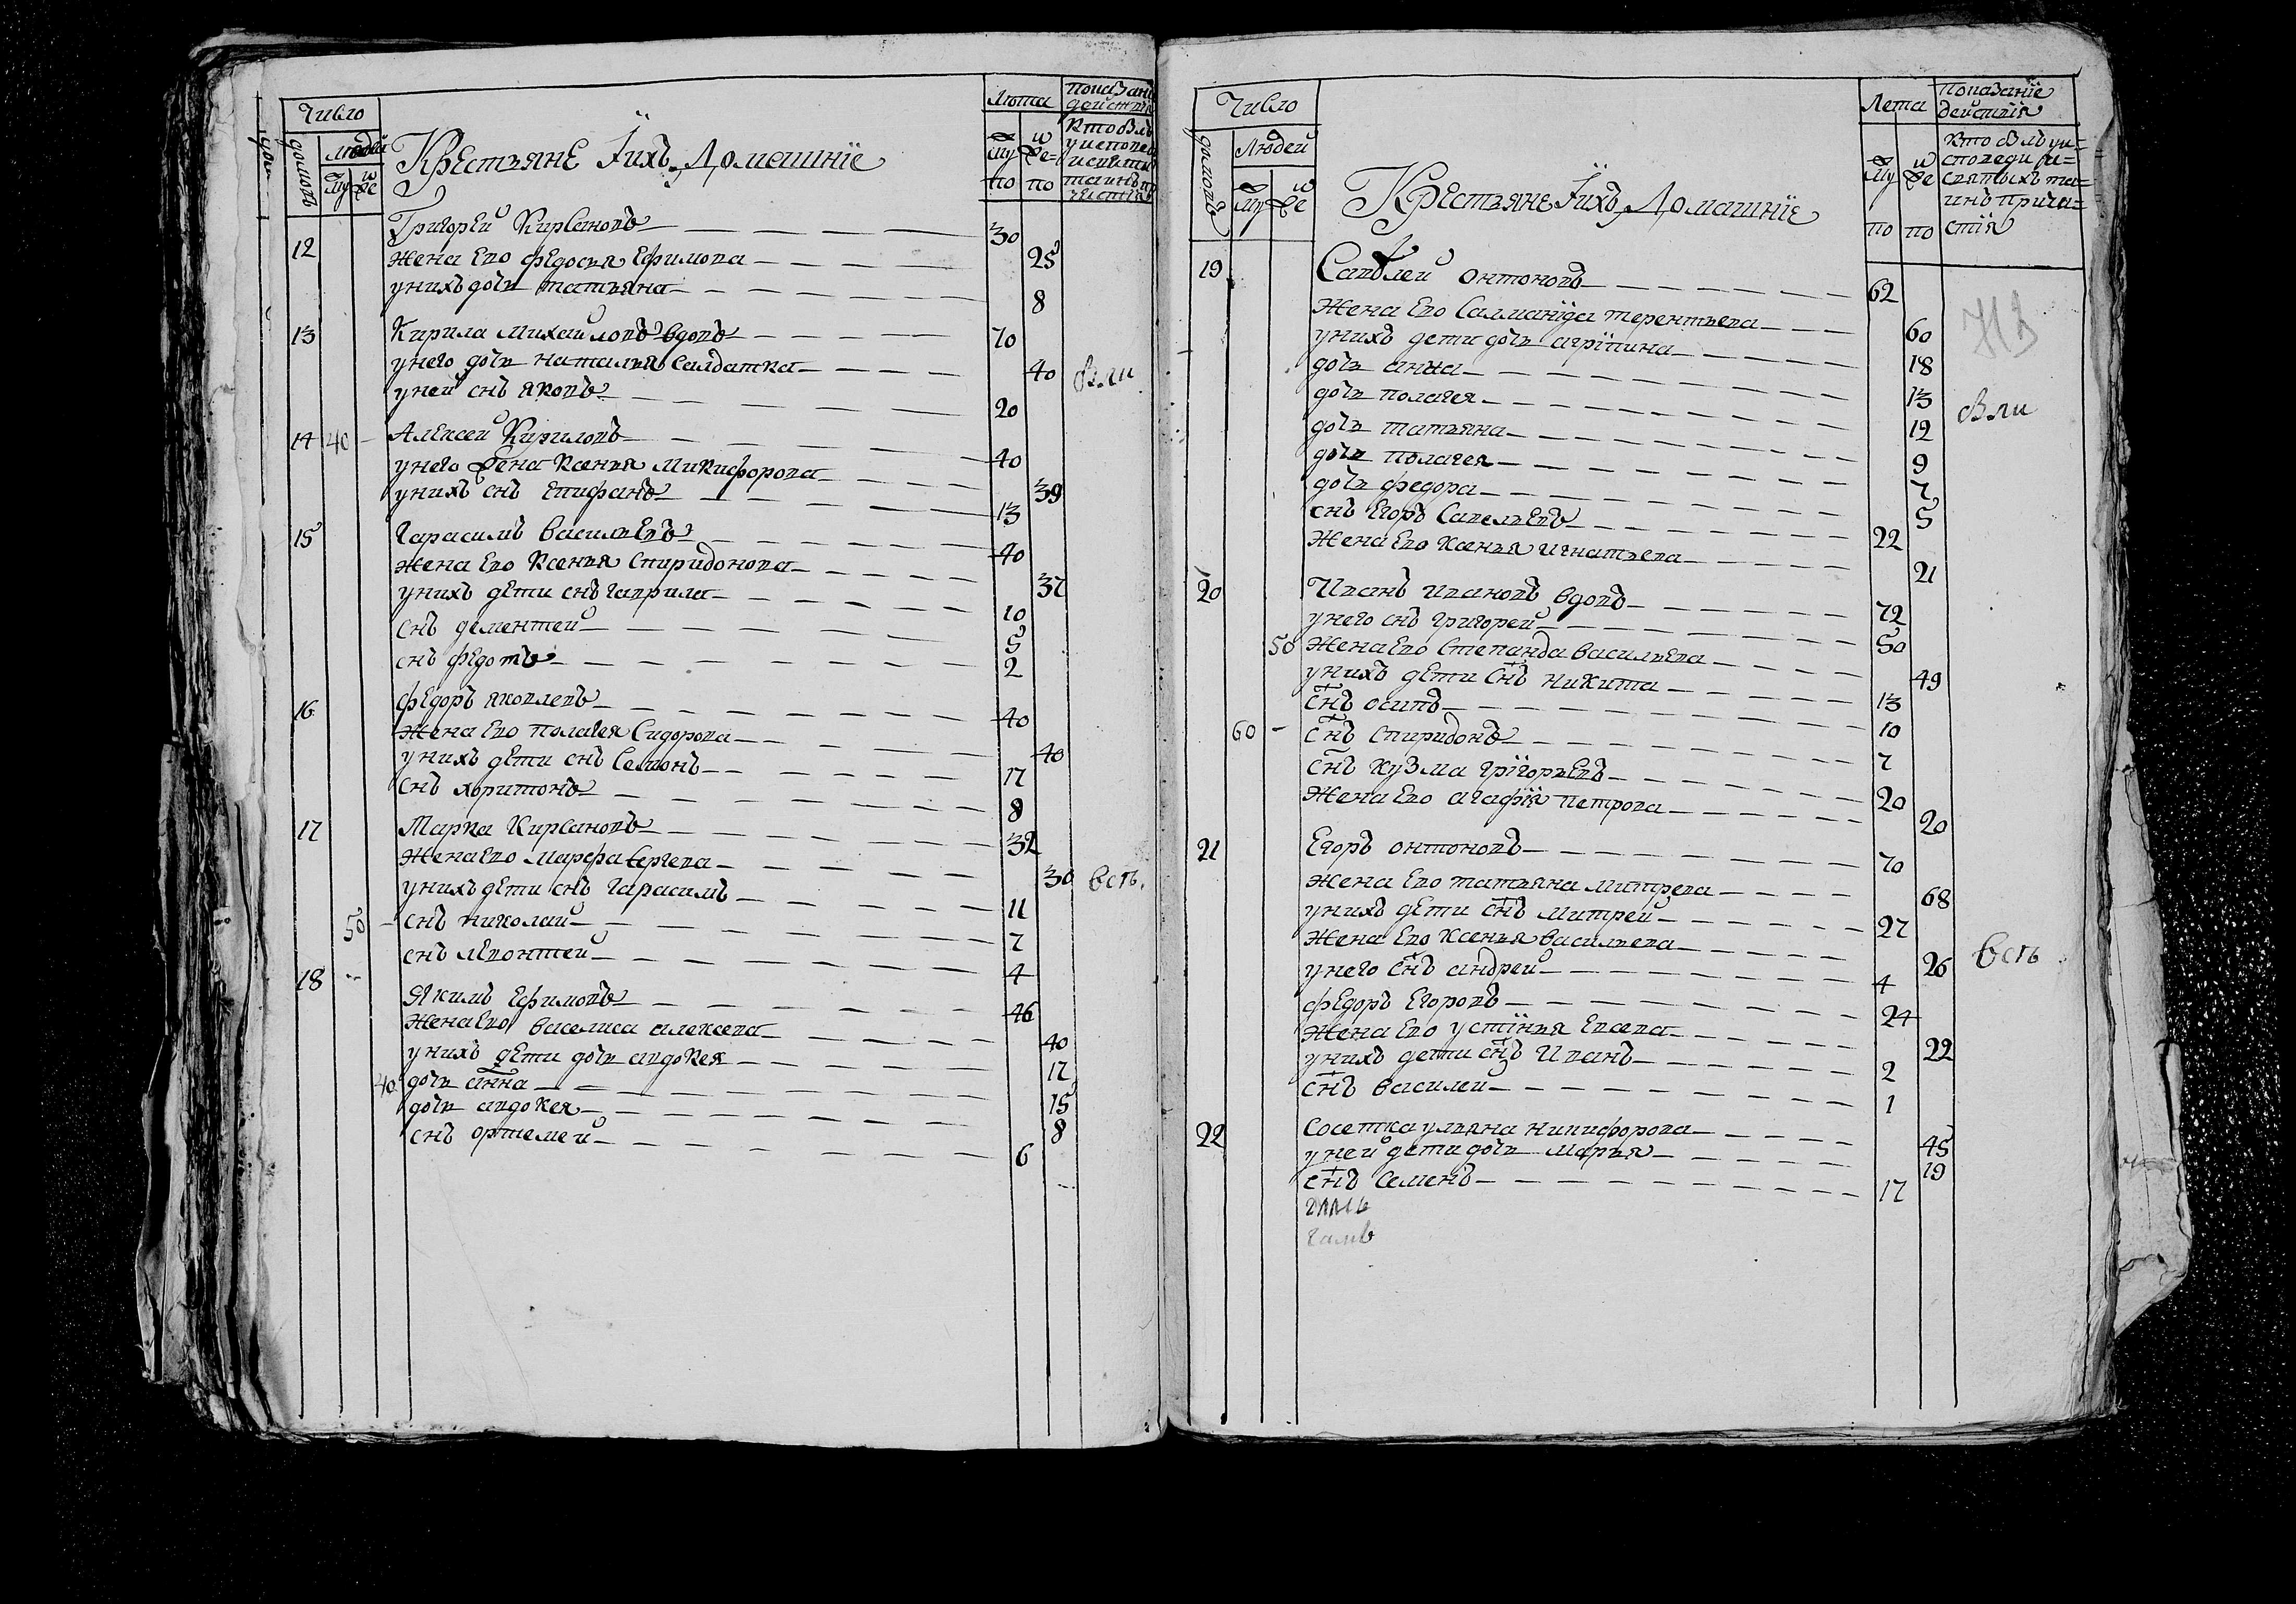 Число
Людей
домовъ
му
же
Крестьяне Ихъ Домашнїе
Лѣта
му
же
по по
Григорей Кирсановъ 30
12
жена ево федосья Ефимова 25
унихъ дочь татьяна 8
13 Кирила Михайловъ вдовъ 70
унего дочь наталья салдатка 40
были
уней снъ яковъ 20
14 40 Алексей Кириловъ 40
унего жена ксенья Микифорова 39
унихъ снъ епифанъ 13
15 Гарасимъ васильевъ 40
жена ево ксенья Спиридонова 37
унихъ дети снъ гаврила 10
снъ дементей 5
снъ федотъ 2
16 федоръ яковлевъ 40
жена ево полагея Сидорова 40
унихъ дети снъ Семонъ 17
снъ харитонъ 8
17 Марка Кирсановъ 32
жена ево Марфа Сергева 30
унихъ дети снъ гарасимъ 11
50 снъ николай 7
снъ леонтей 4
18 Якимъ Ефимовъ 46
жена ево василиса алексева 40
унихъ дети дочь авдокея 17
40 дочь анна 15
дочь авдокея 8
снъ ортемей 6
Число
Людей
домовъ
му
же
Крестьяне Ихъ Домашнїе
Лета
му
же
по по
Показанїе
действїя
кто былъ уи=
споведи и=
святыхъ та=
инъ прича=
стїя
19 Савелей онтоновъ 62
жена ево Саламанїда терентьева 60
унихъ дети дочь агрїпина 18
дочь анна 13
были
дочь полагея 12
дочь татьяна 9
дочь полагея 7
дочь федора 5
снъ Егоръ Савельевъ 22
жена ево ксенья игнатьева 21
20 Иванъ ивановъ вдовъ 72
унего снъ григорей 50
50 жена ево Степанида васильева 49
унихъ дети снъ никита 13
снъ осипъ 10
60 снъ спиридонъ 7
снъ кузма грїгорьевъ 20
жена ево агафїя петрова 20
21 Егоръ онтоновъ 70
жена ево татьяна митрева 68
унихъ дети снъ митрей 27
жена ево ксенья васильева 26
унего снъ андрей 4
федоръ Егоровъ 24
жена ево устїнья Евсева 22
унихъ дети снъ Иванъ 2
снъ василей 1
22 Сосетка ульяна никифорова 45
уней дети дочь марья 19
снъ семенъ 17